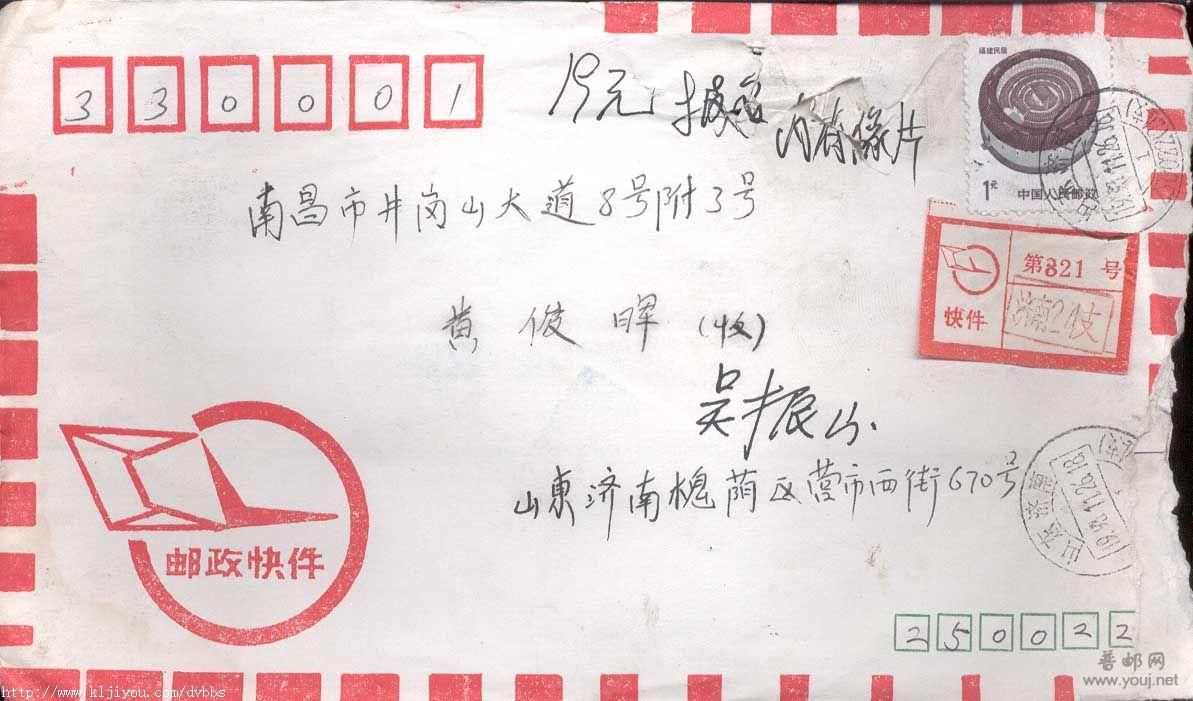 330001
19元
内有像片
福建民居
1元
中国人民邮政
南昌市井岗山大道8号附3号
第821号
快件
济南24支
黄俊晖(收)
吴振山.
山東济南槐荫区营市西街670号
山东济南
邮政快件
250022
http://www.kljiyou.com/dvbbs
普邮网
www.youj.net